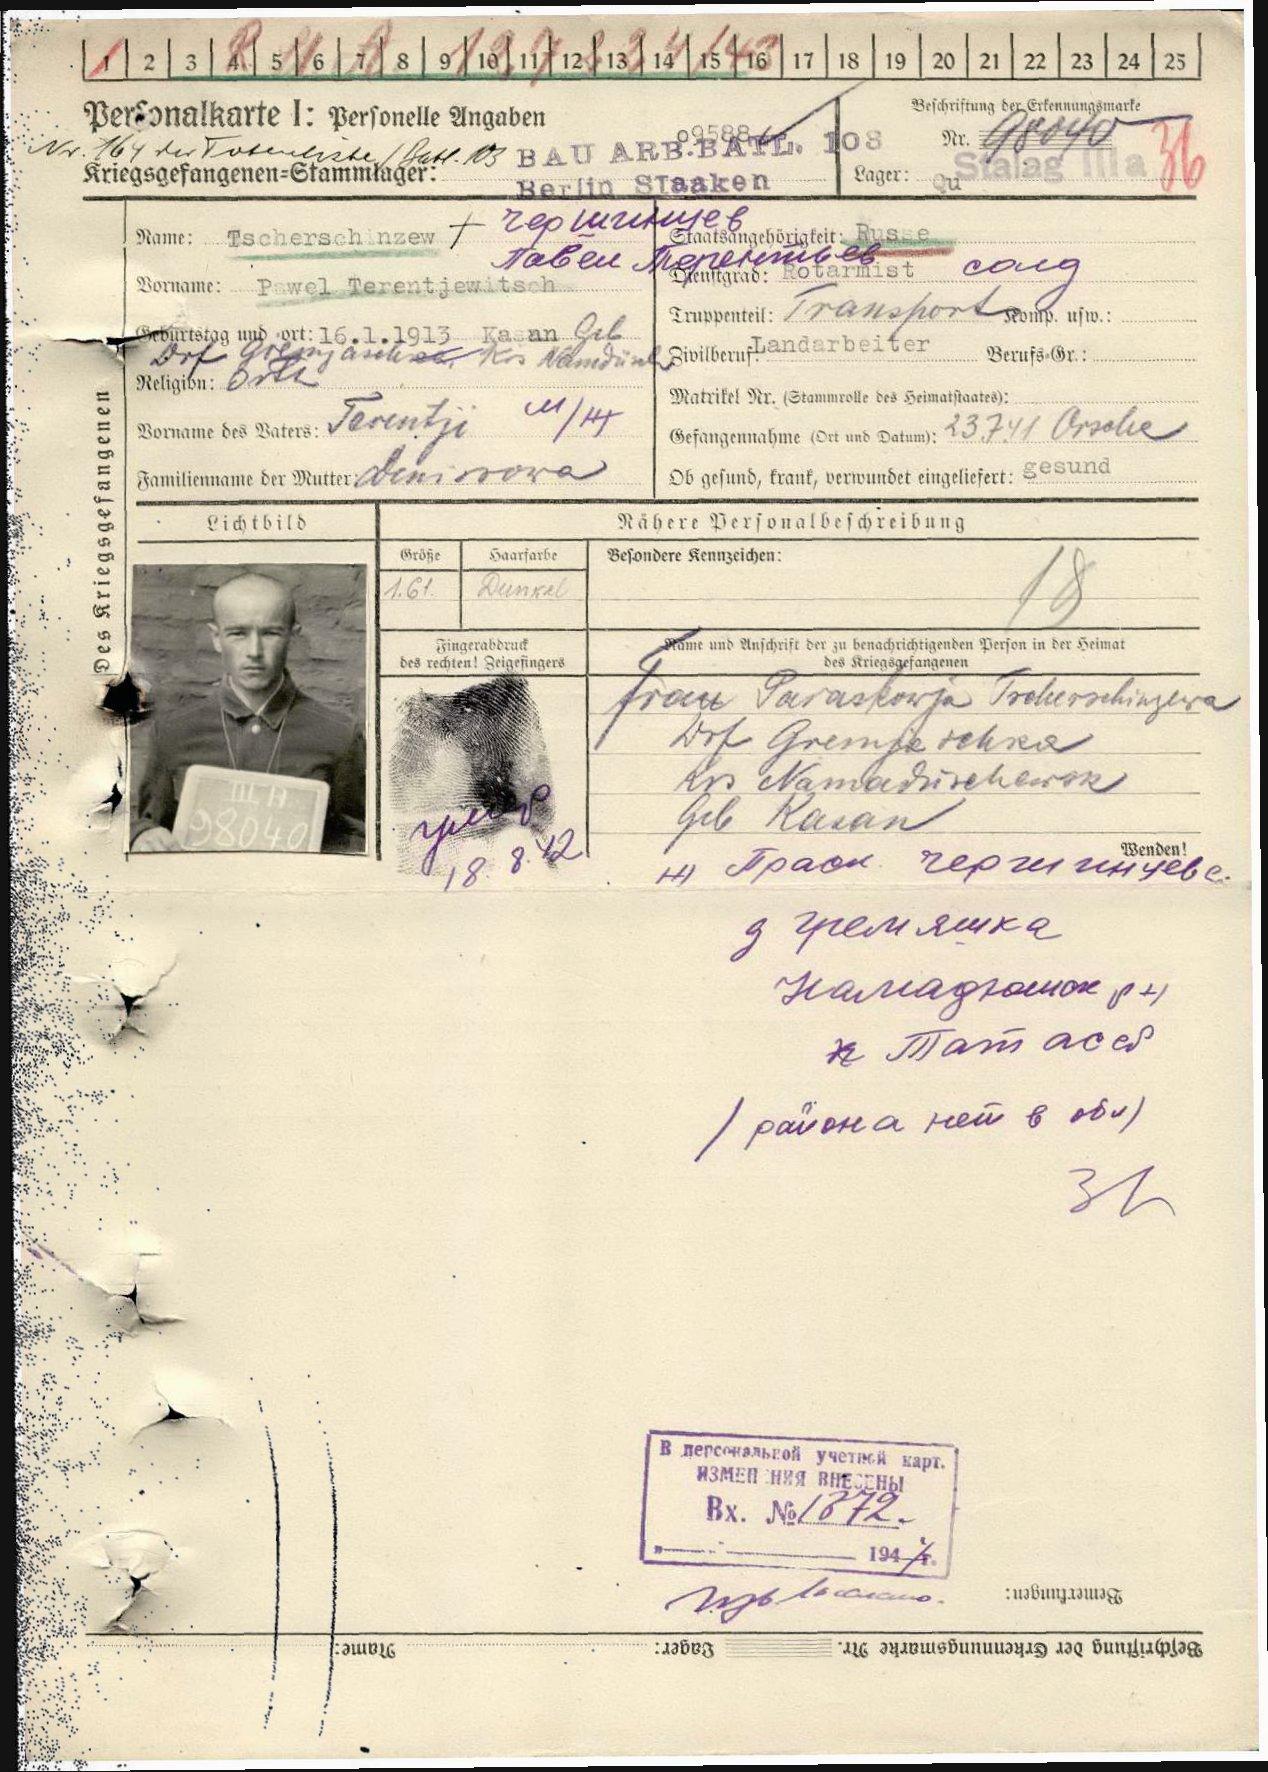 1 2 3 4 5 6 7 8 9 10 11 12 13 14 15 16 17 18 19 20 21 22 23 24 25
Personalkarte I: Personelle Angaben
Beschriftung der Erkennungsmarke
Nr. 98040
36
Nr. 164 der Totenliste /
BAU ARB.BATL. 108
Kriegsgefangenen=Stammlager:
Berlin Staaken
Lager: Stalag III a
Name: Tscherschinzew +
Чершинцев
Staatsangehörigkeit: Russe
Павел Терентьев
Vorname: Pawel Terentjewitsch
Dienstgrad: Rotarmist солд
Truppenteil: Transport Komp. usw.:
Geburtstag und =ort: 16.1.1913 Kasan Geb
Zivilberuf: Landarbeiter Berufs=Gr.:
Religion: Orth
Matrikel Nr. (Stammrolle des Heimatstaates):
Vorname des Vaters: Terentji
Gefangennahme (Ort und Datum): 23.7.41 Orscha
Familienname der Mutter: Denissowa
Ob gesund, krank, verwundet eingeliefert: gesund
Des Kriegsgefangenen
Lichtbild
Nähere Personalbeschreibung
Größe Haarfarbe Besondere Kennzeichen:
1.61. Dunkel
18
Fingerabdruck
des rechten! Zeigefingers
Name und Anschrift der zu benachrichtigenden Person in der Heimat
des Kriegsgefangenen
Frau Paraskowja Tscherschinzewa
Drf Gremjaschka
Krs Namadüschewsk
Geb Kasan
III A
98040
умер
18.8.42
Wenden!
ж Праск Чершинцева
д Гремяшка
Намадюшск р н
Тат асср
/ района нет в обл)
В персональной учетной карт.
ИЗМЕНЕНИЯ ВНЕСЕНЫ
Вх. № 1872.
194 г.
Bemerkungen:
Name: Lager: Beschriftung der Erkennungsmarke Nr.